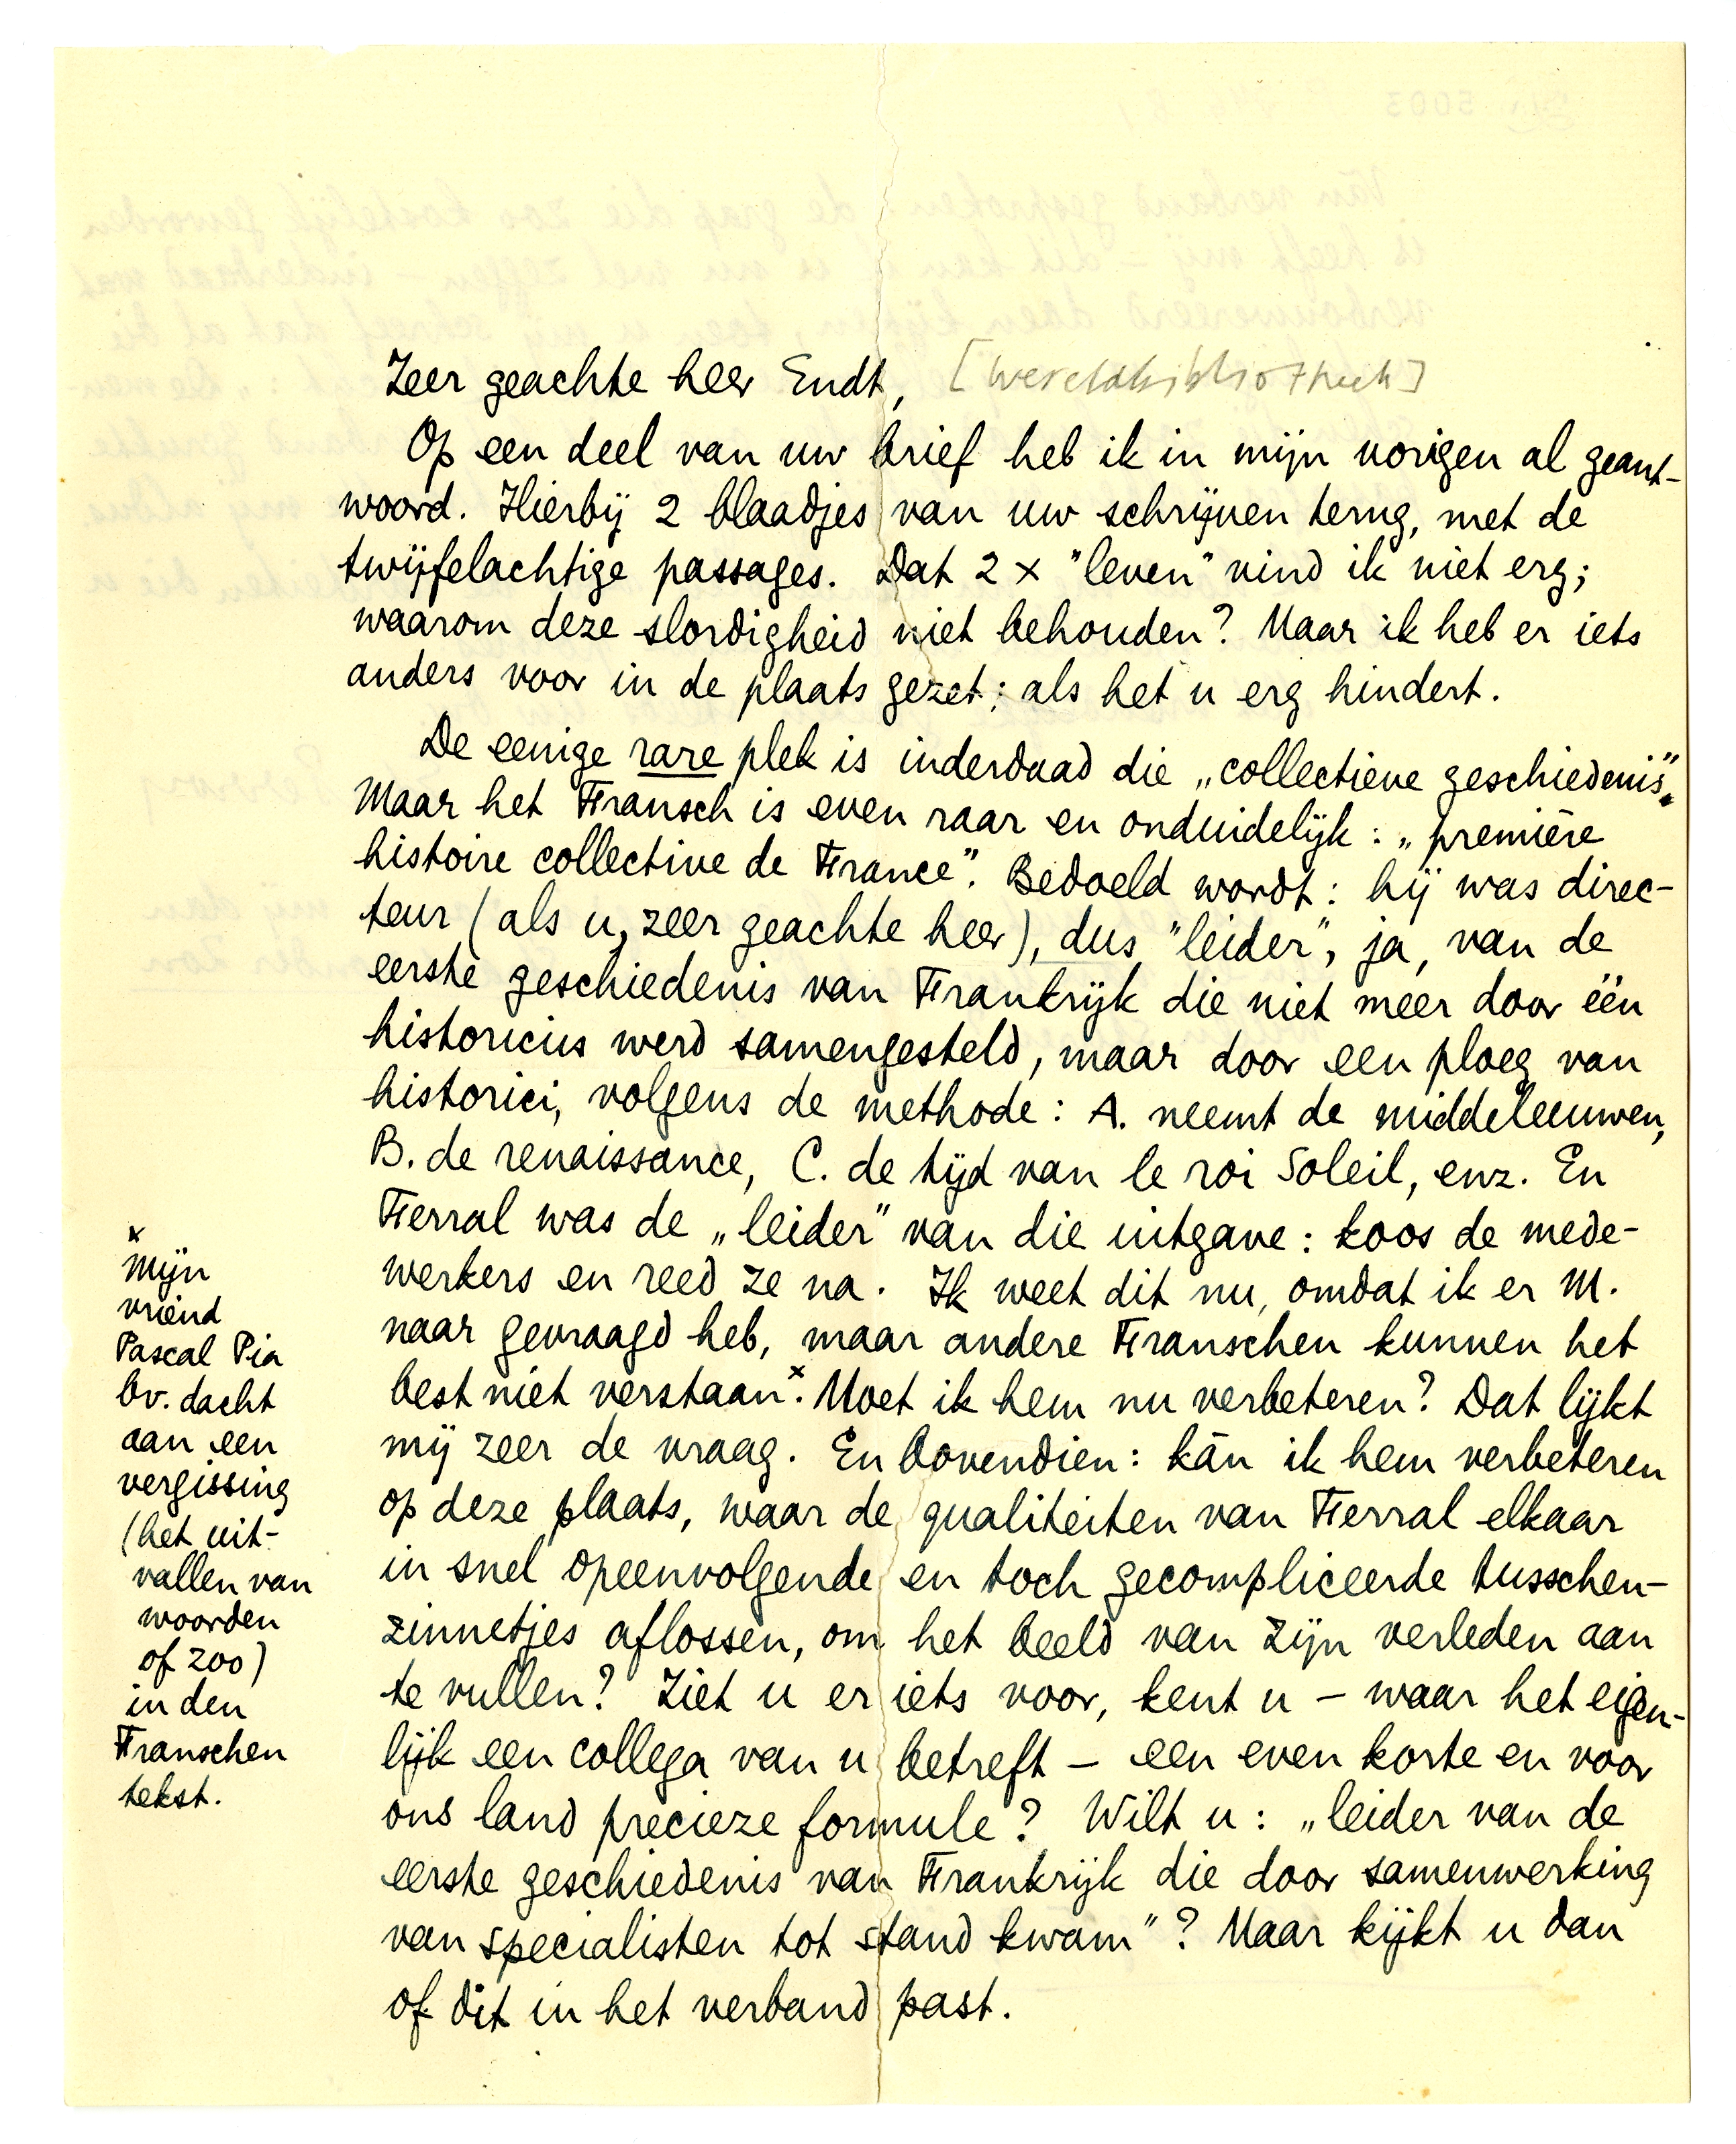 Zeer geachte heer Endt, [Wereldbibliotheek]
Op een deel van uw brief heb ik in mijn vorigen al geant-
woord. Hierbij 2 blaadjes van uw schrijven terug, met de
twijfelachtige passages. Dat 2 x "leven" vind ik niet erg;
waarom deze slordigheid niet behouden? Maar ik heb er iets
anders voor in de plaats gezet; als het u erg hindert.
De eenige rare plek is inderdaad die „collectieve geschiedenis".
Maar het Fransch is even raar en onduidelijk: „première
histoire collective de France". Bedoeld wordt: hij was direc-
teur (als u, zeer geachte heer), dus "leider", ja, van de
eerste geschiedenis van Frankrijk die niet meer door één
historicus werd samengesteld, maar door een ploeg van
historici, volgens de methode: A. neemt de middeleeuwen,
B. de renaissance, C. de tijd van le roi Soleil, enz. En
Ferral was de „leider" van die uitgave: koos de mede-
werkers en reed ze na. Ik weet dit nu, omdat ik er M.
naar gevraagd heb, maar andere Franschen kunnen het
best niet verstaan.x Moet ik hem nu verbeteren? Dat lijkt
mij zeer de vraag. En bovendien: kán ik hem verbeteren
op deze plaats, waar de qualiteiten van Ferral elkaar
in snel opeenvolgende en toch gecompliceerde tusschen-
zinnetjes aflossen, om het beeld van zijn verleden aan
te vullen? Ziet u er iets voor, kent u – waar het eigen-
lijk een collega van u betreft – een even korte en voor
ons land precieze formule? Wilt u: „leider van de
eerste geschiedenis van Frankrijk die door samenwerking
van specialisten tot stand kwam"? Maar kijkt u dan
of dit in het verband past.
x
Mijn
vriend
Pascal Pia
bv. dacht
aan een
vergissing
(het uit-
vallen van
woorden
of zoo)
in den
Franschen
tekst.